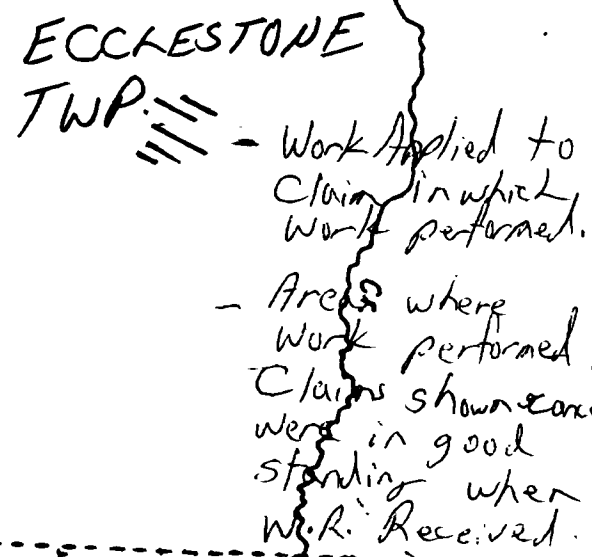 ECCLESTONE
TWP.
- Work Applied to
Claim in which
Work performed.
- Areas where
Work performed.
Cr
Claims shown
were in good
standing when
W.R. Received.